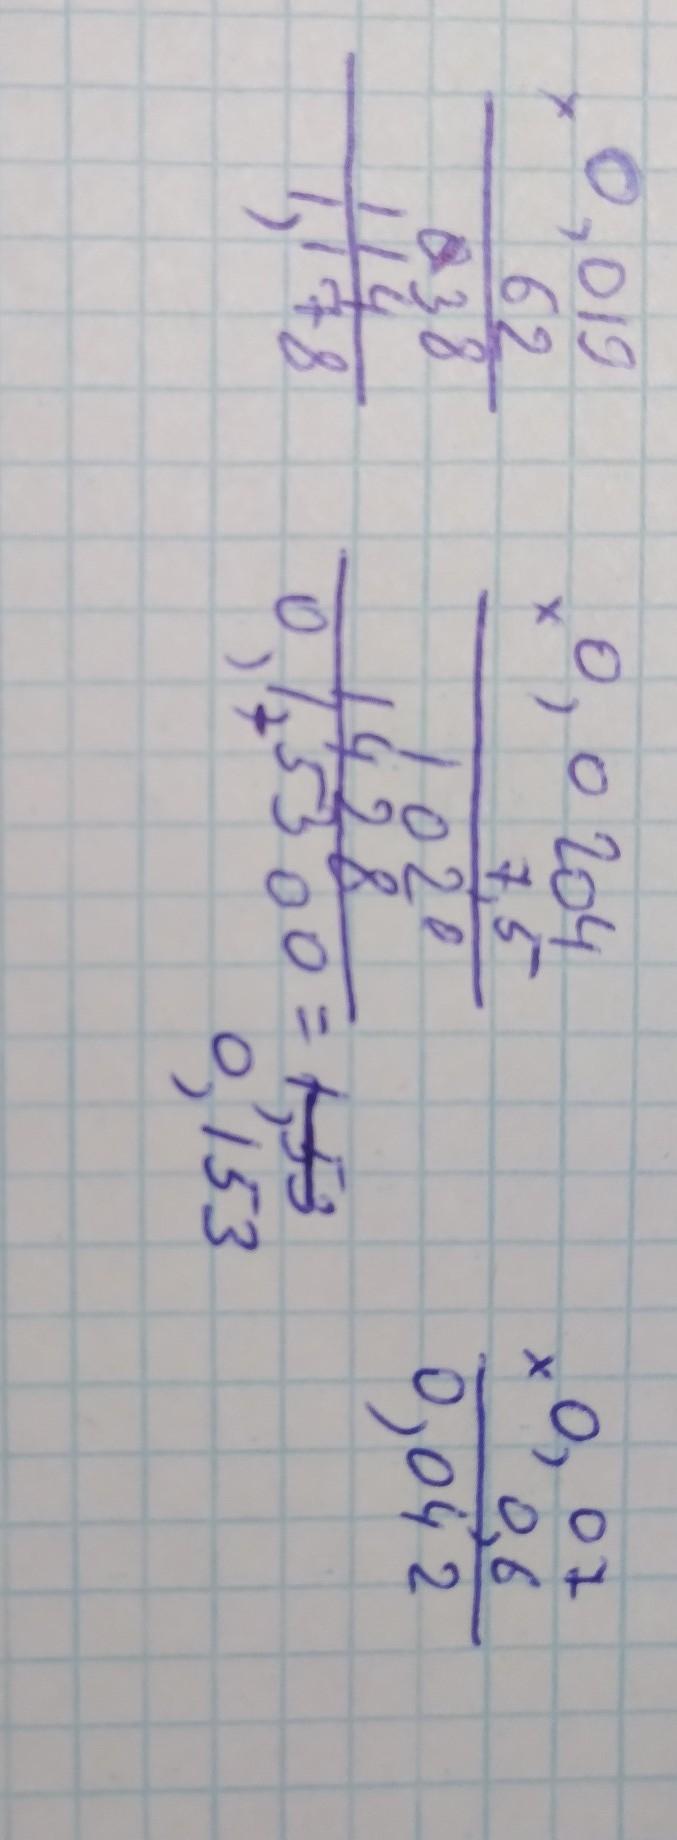 × 0,019
62
038
114
1,178
× 0,0204
7,5
1020
1428
0,15300 = 1,53
0,153
× 0,07
0,6
0,042